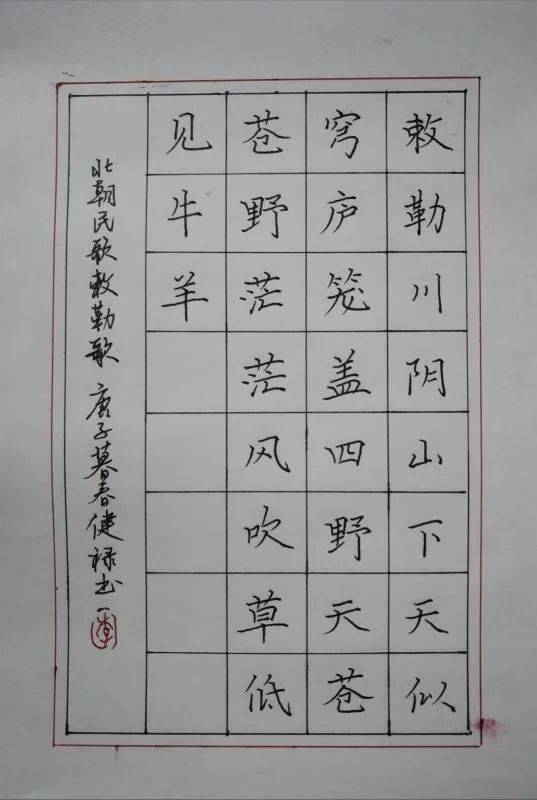 敕勒川阴山下天似
穹庐笼盖四野天苍
苍野茫茫风吹草低
见牛羊
北朝民歌敕勒歌 庚子暮春健禄书